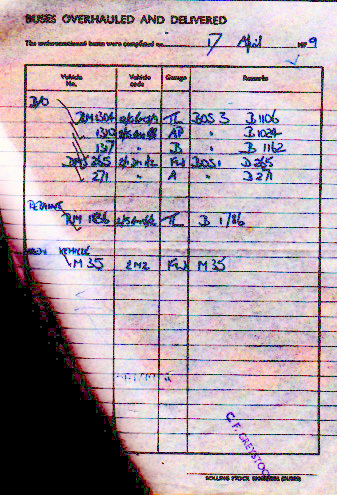 BUSES OVERHAULED AND DELIVERED
The undermentioned buses were completed on 17 April 1979
Vehicle No. Vehicle code Garage Remarks
B/O
RM 1304 TL BOS 3 B 1106
1310 AP " B 1024
1317 " B " B 1162
DMS 265 FW BOS 1 D 265
271 " A " D 271
REPAINTS
RM 1836 TL B 1186
NEW VEHICLE
M 35 2M2 FW M 35
C.F. GREYSTOCK
ROLLING STOCK ENGINEER (BUSES)